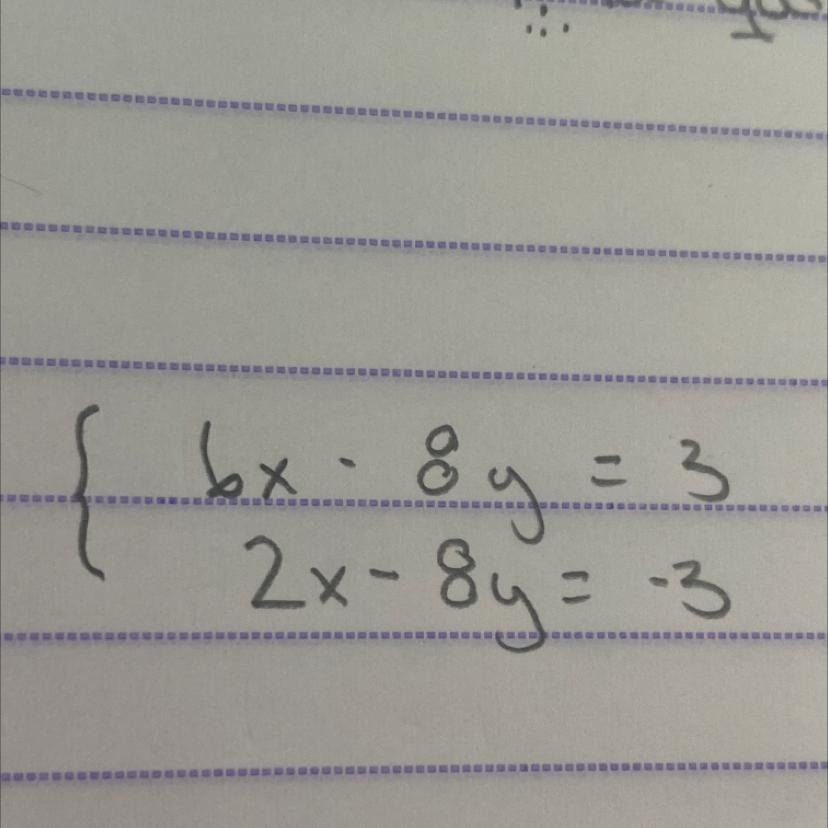 6x - 8y = 3
2x - 8y = -3